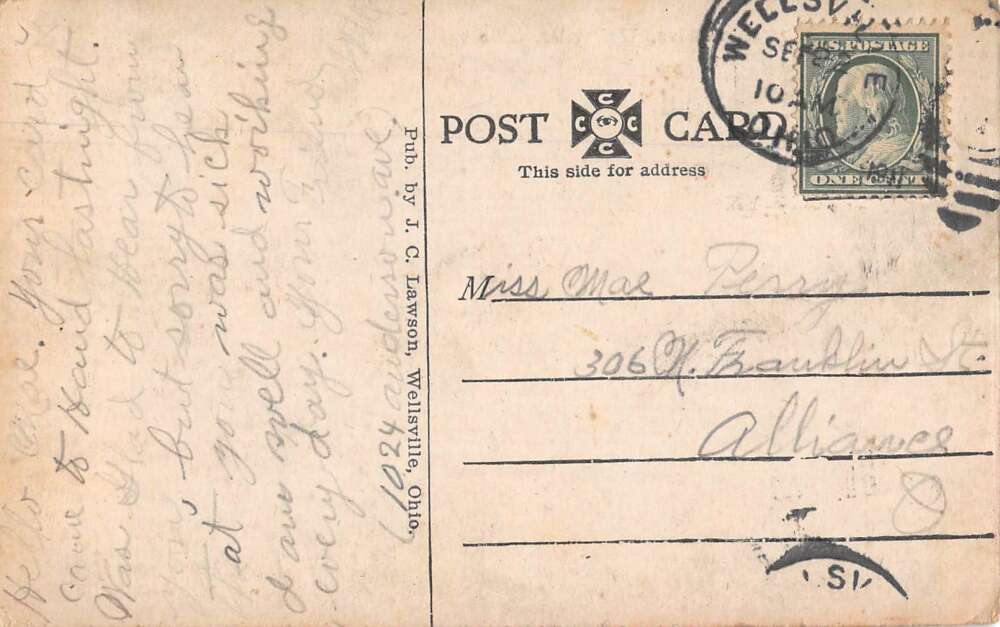 Hello Mae. Your card
came to Hand last night
Was Glad to Hear from
you, but sorry to hear
That you was sick
I am well and working
every day. Your
1024 anderson ave.
Pub. by J. C. Lawson, Wellsville, Ohio.
POST CARD
C C C C
This side for address
WELLSVILLE
SEP
10 AM
OHIO
U.S. POSTAGE
ONE CENT
Miss Mae Perry
306 N. Franklin St.
Alliance
O